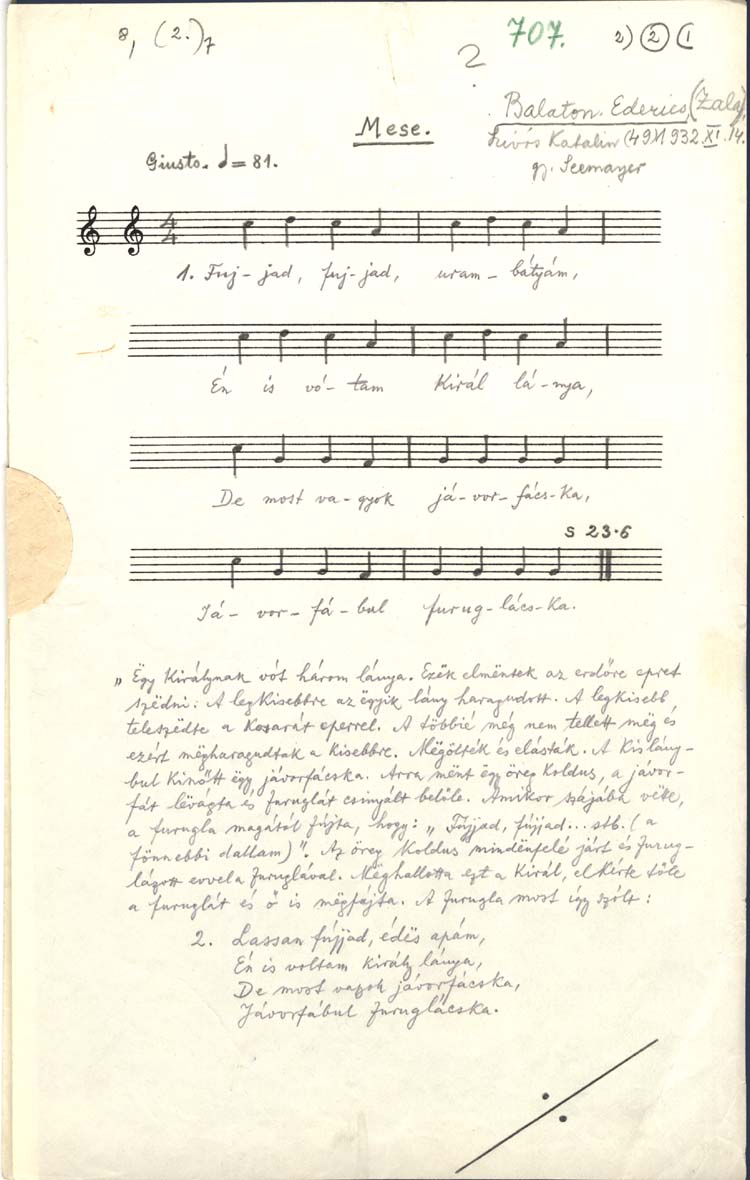 8, (2.)7
2
707.
2) 2 (1
Balaton. Ederics (Zala)
Mese.
Katalin (49) 1932. XI. 14.
Giusto. ♩= 81.
gy. Seemayer
4/4
1. Fuj-jad, fuj-jad, uram-bátyám,
Én is vó-tam Királ lá-nya,
De most va-gyok já-vor-fács-ka,
S 23·6
Já-vor-fá-bul furug-lács-ka.
„ Ëgy Királynak vót három lánya. Ezëk elmëntek az erdőre epret
szëdni. A legkisebbre az ëgyik lány haragudott. A legkisebb
teleszëdte a kosarát eperrel. A többié még nem tellett még és
ezért mëgharagudtak a kisebbre. Mëgölték és elásták. A kislány-
bul kinőtt ëgy jávorfácska. Arra mënt ëgy öreg koldus, a jávor-
fát lëvágta és furuglát csinyált belőle. Amikor szájába vëtte,
a furugla magától fújta, hogy: „ Fújjad, fújjad... stb. (a
fönnebbi dallam)". Az öreg koldus mindënfelé járt és furug-
lázott evvel a furuglával. Mëghallotta ezt a Királ, elkérte tőle
a furuglát és ő is mëgfújta. A furugla most így szólt:
2. Lassan fújjad, édës apám,
Én is voltam király lánya,
De most vagyok jávorfácska,
Jávorfábul furuglácska.